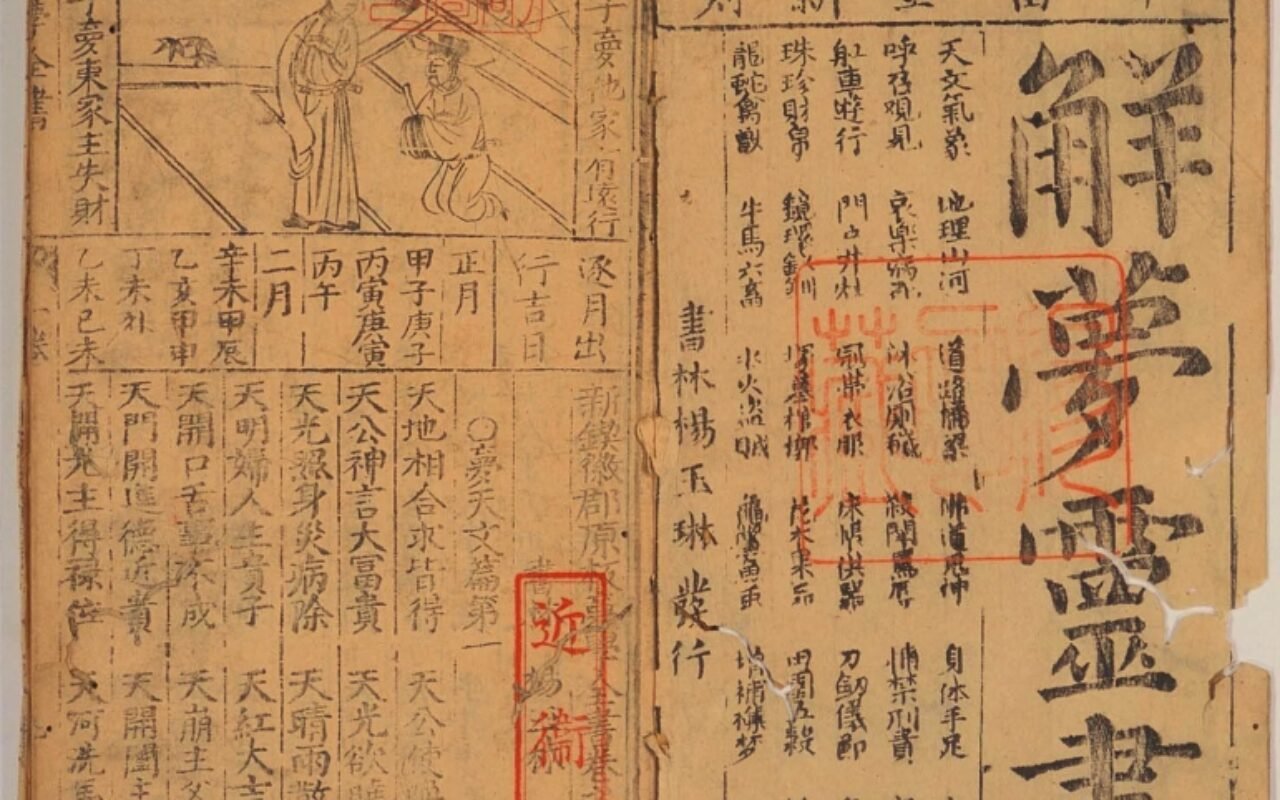 解夢靈書
天文氣象 地理山河 道路橋梁 佛道鬼神 身体手足
呼召観見 哀樂病死 沐浴厠穢 殺鬪 捕禁刑責
舡車遊行 門戸井灶 冠帯衣服 床帳供器 刀劔儀節
珠珍財帛 鏡環釵釧 塚墓棺槨 花木果品 田園五穀
龍蛇禽獸 牛馬六畜 水火盜賊 增補
書林楊玉琳發行
子夢他家有遠行
子夢東家主失財
逐月出
行吉日
正月
甲子庚子
丙寅庚寅
丙午
二月
辛未甲辰
乙亥甲申
丁未
乙未己未
新鍥徽郡原板夢學全書卷
近衞
○夢天文篇第一
天地相合求皆得 天公使
天公神言大富貴 天光欲
天光照身災病除 天晴雨散
天明婦人生貴子 天紅大吉
天開口舌事不成 天崩主父
天門開進德近貴 天開闔主
天開光主得祿位 天河洗馬